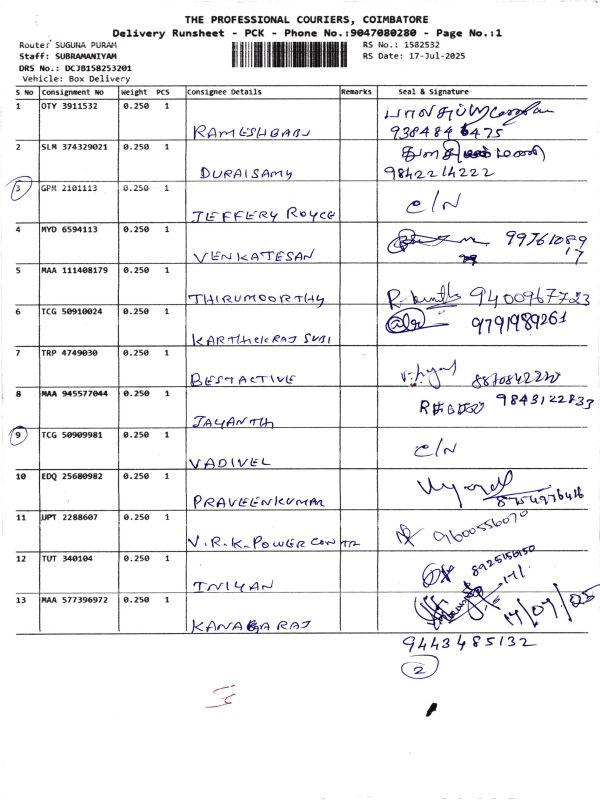 THE PROFESSIONAL COURIERS, COIMBATORE
Delivery Runsheet - PCK - Phone No.:9047080280 - Page No.:1
Route: SUGUNA PURAM RS No.: 1582532
Staff: SUBRAMANIYAM RS Date: 17-Jul-2025
DRS No.: DCJB158253201
Vehicle: Box Delivery
S No Consignment No Weight PCS Consignee Details Remarks Seal & Signature
1 OTY 3911532 0.250 1
RAMESHBABU 938484 6475
2 SLM 374329021 0.250 1
DURAISAMY 9842214222
3 GPM 2101113 0.250 1 C/N
JEFFERY ROYCE
4 MYD 6594113 0.250 1 99761089
VENKATESAN 17
5 MAA 111408179 0.250 1
THIRUMOORTHY 9400967723
6 TCG 50910024 0.250 1 9791989261
KARTHICKRAJ SUBI
7 TRP 4749030 0.250 1
BESTACTIVE 8870842220
8 MAA 945577044 0.250 1 9843122833
JAYANTH
9 TCG 50909981 0.250 1 C/N
VADIVEL
10 EDQ 25680982 0.250 1
PRAVEENKUMAR 8754976416
11 UPT 2288607 0.250 1 9600556070
V.R.K. POWER CONTR
12 TUT 340104 0.250 1 8925156150
INIYAN
13 MAA 577396972 0.250 1 17/07/25
KANAGARAJ
9443485132
2